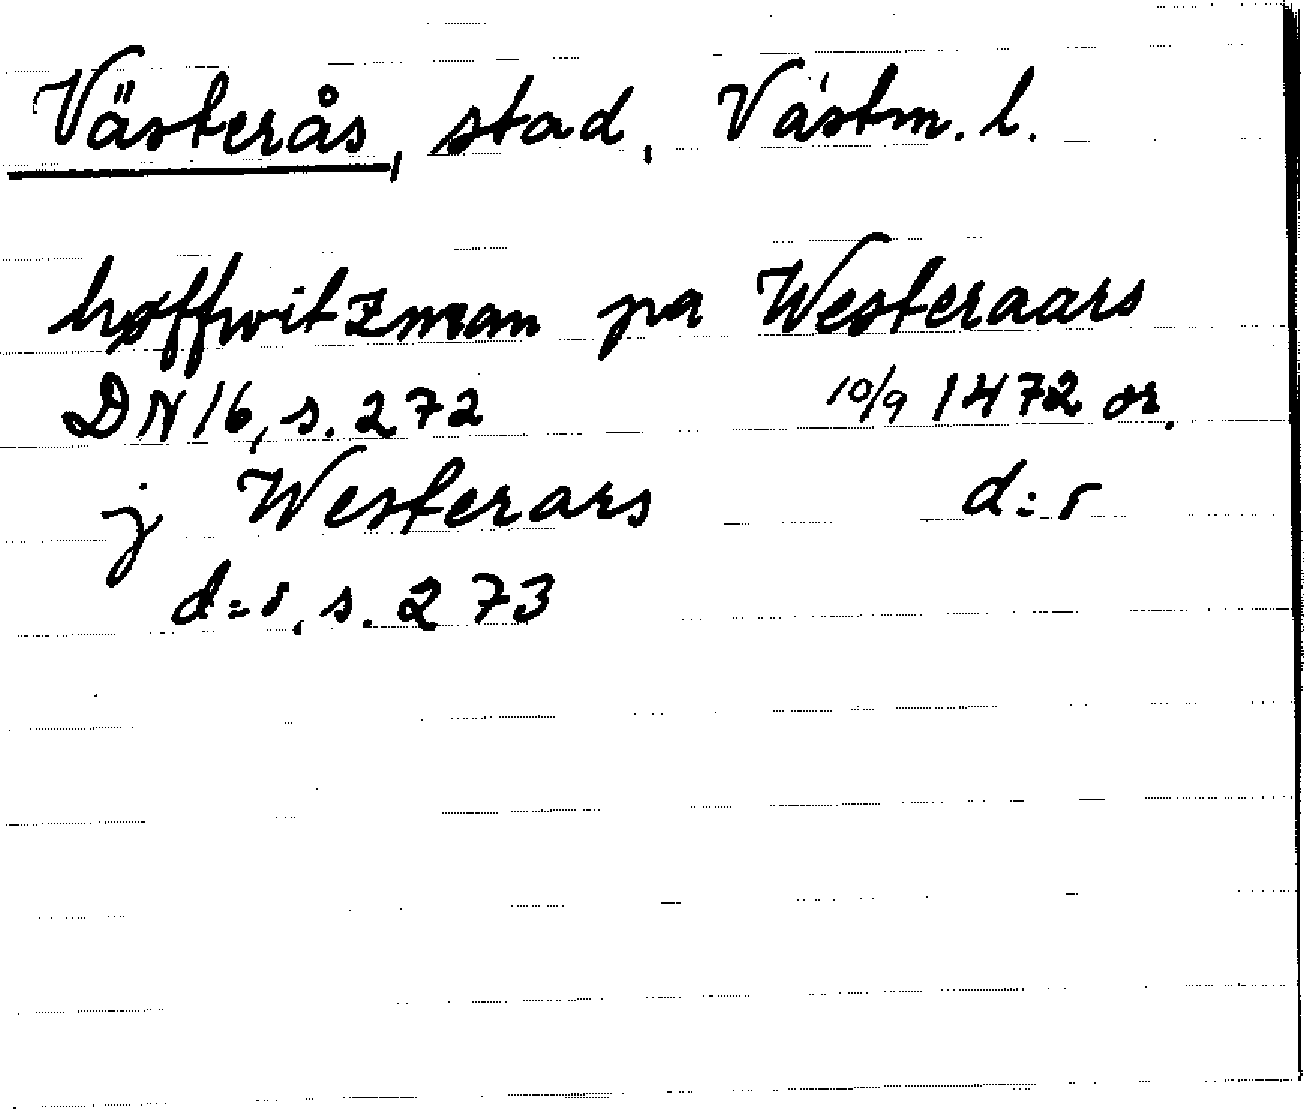 Västerås, stad, Västm. l.
høffwitzman pa Westeraars
DN 16, s. 272 10/9 1472 or.
j Westerars d:o
d:o, s. 273